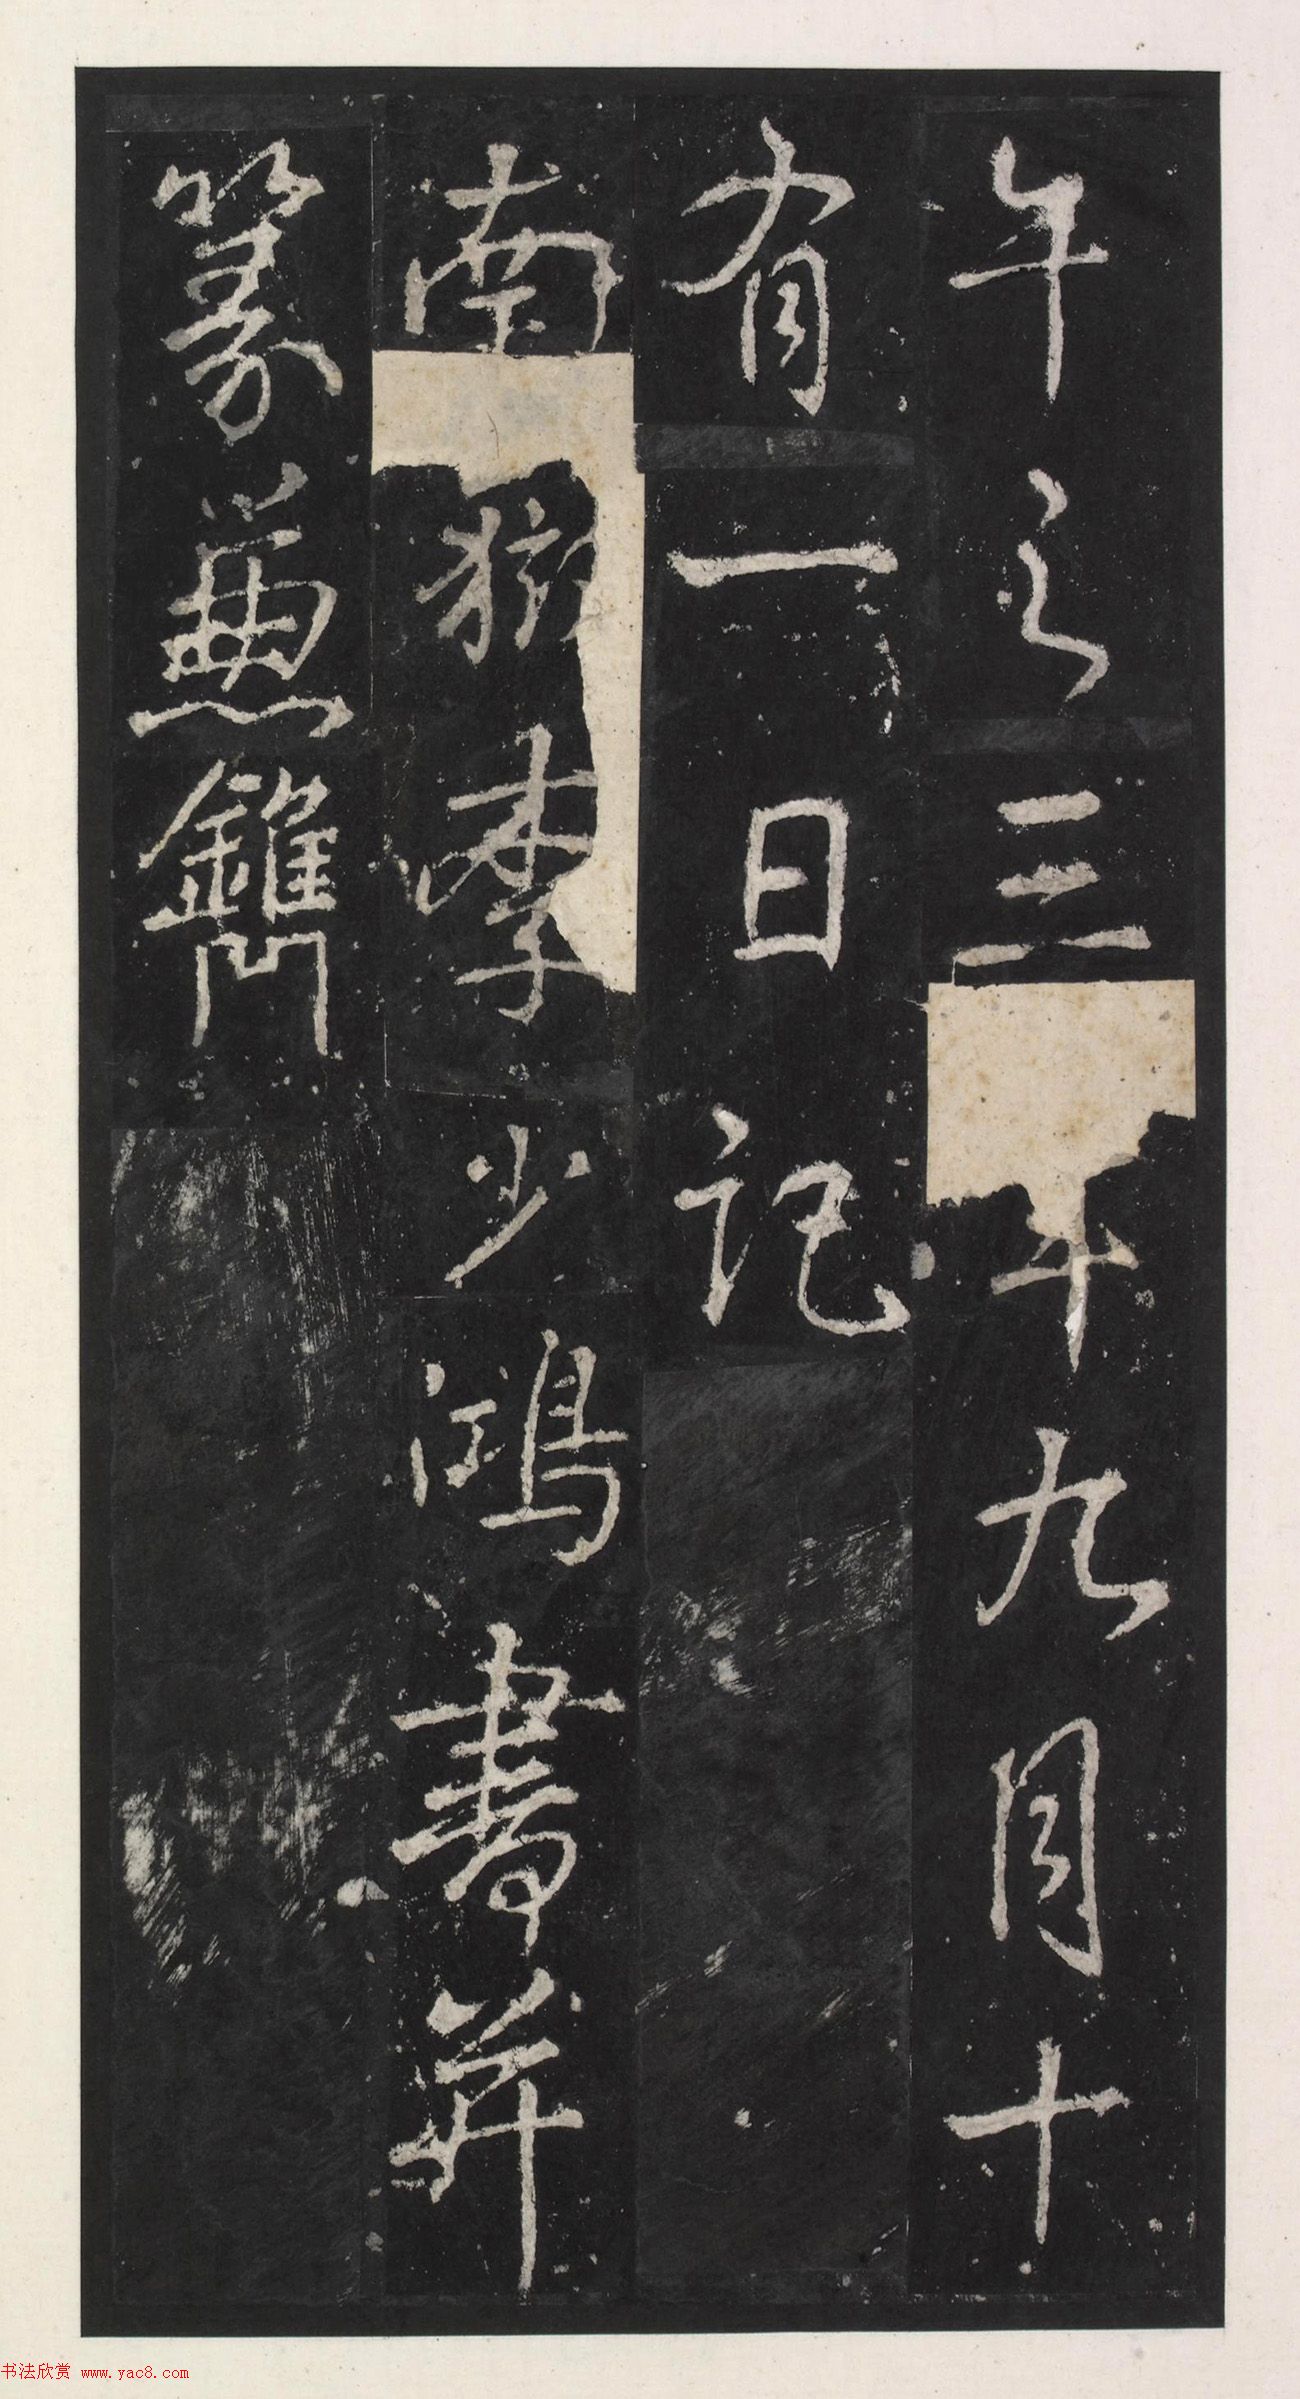 午之三年九月十
有一日記
南嶽李少鴻書并
篆兼鐫
书法欣赏 www.yac8.com